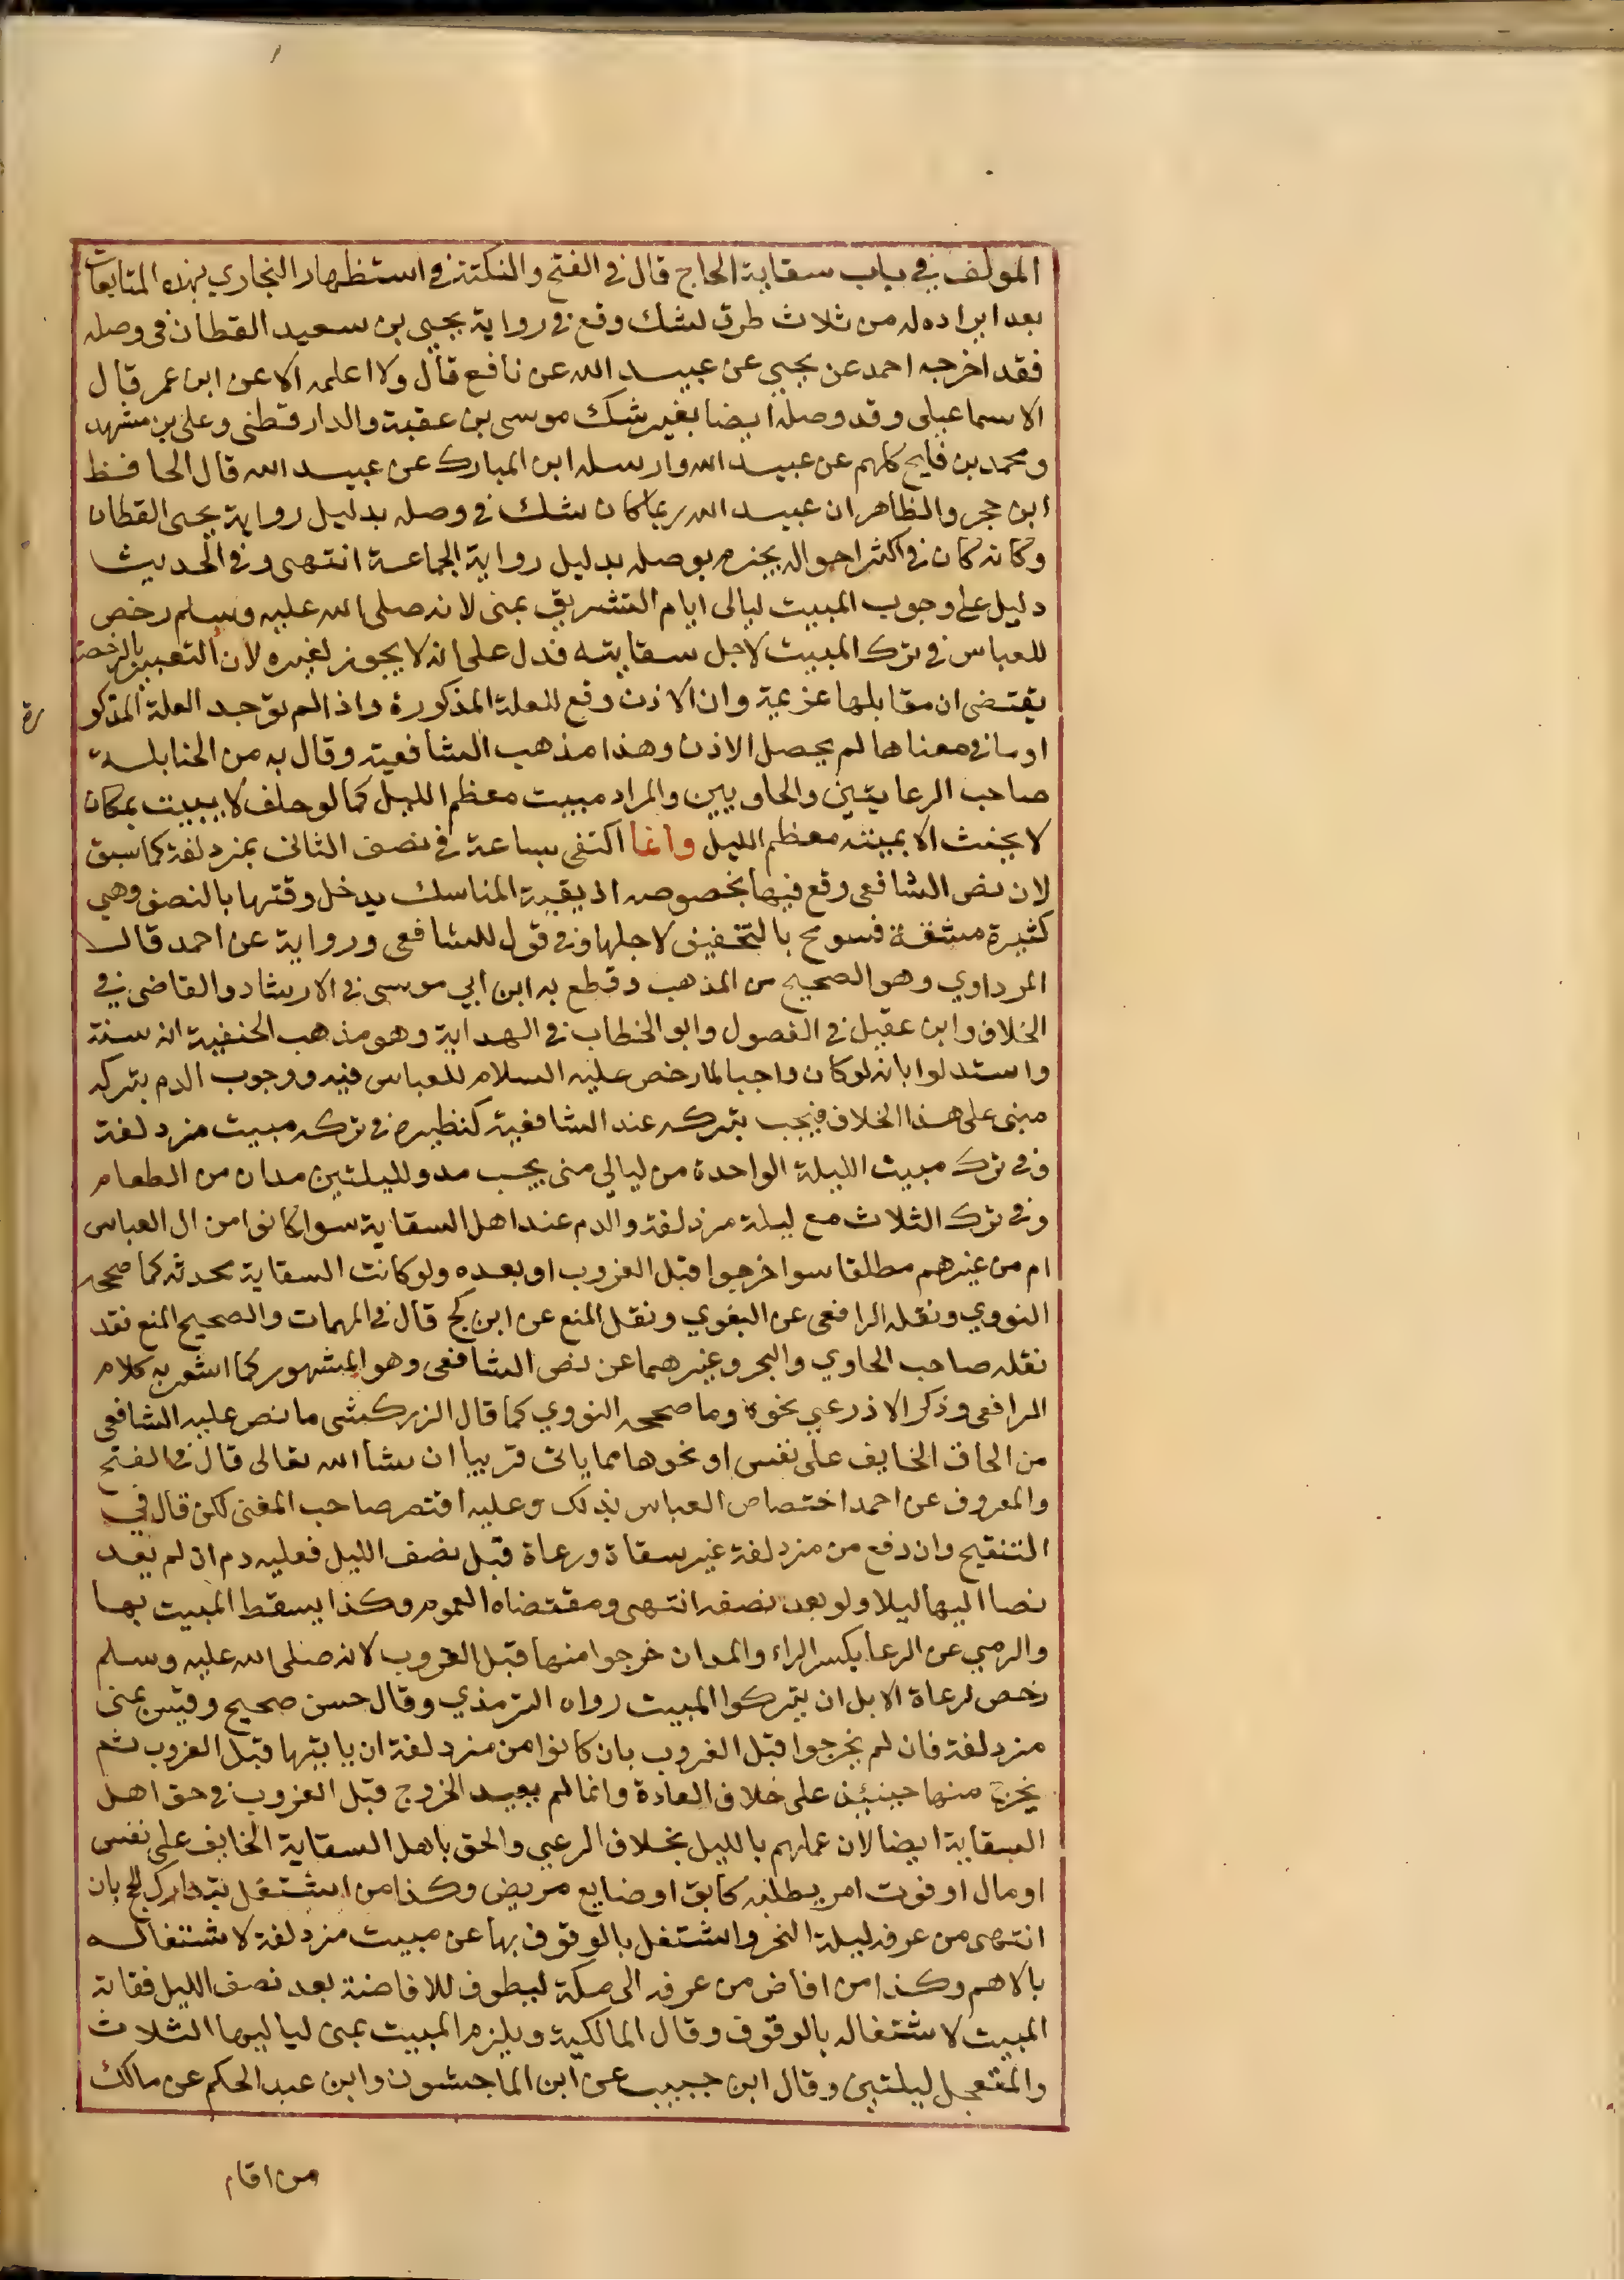 المولف في باب سقاية الحاج قال في الفتح والنكتة في استظهار البخاري بهذه المتابعات
بعد ايراده له من ثلاث طرق لشك وقع في رواية يحيى بن سعيد القطان في وصله
فقد اخرجه احمد عن يحيي عن عبيد الله عن نافع قال ولا اعلمه الا عن ابن عمر قال
الاسماعيلي وقد وصله ايضا بغير شك موسى بن عقبة والدارقطني وعلي بن مشهد
ومحمد بن فليح كلهم عن عبيد الله وارسله ابن المبارك عن عبيد الله قال الحافظ
ابن حجر والظاهر ان عبيد الله ربما كان شك في وصله بدليل رواية يحيى القطان
وكانه كان في اكثر احواله يجزم بوصله بدليل رواية الجماعة انتهى وفي الحديث
دليل على وجوب المبيت ليالى ايام التشريق بمنى لانه صلى الله عليه وسلم رخص
للعباس في ترك المبيت لاجل سقايته فدل على انه لا يجوز لغيره لان التعبير بالرخصة
يقتضى ان مقابلها عزيمة وان الاذن وقع للعلة المذكورة واذا لم توجد العلة المذكو
رة
او ما في معناها لم يحصل الاذن وهذا مذهب الشافعية وقال به من الحنابلة
صاحب الرعايتين والحاويين والمراد مبيت معظم الليل كما لو حلف لا يبيت بمكان
لا يحنث الا بمبيته معظم الليل وانما اكتفى بساعة في نصف الثانى بمزدلفة كما سبق
لان نص الشافعى وقع فيها بخصوصه اذ بقية المناسك يدخل وقتها بالنصف وهي
كثيرة مشقة فسومح بالتخفيف لاجلها وفي قول للشافعى ورواية عن احمد قال
المرداوي وهو الصحيح من المذهب وقطع به ابن ابي موسى في الارشاد والقاضى في
الخلاف وابن عقيل في الفصول وابو الخطاب في الهداية وهو مذهب الحنفية انه سنة
واستدلوا بانه لو كان واجبا لما رخص عليه السلام للعباس فيه ووجوب الدم بتركه
مبنى على هذا الخلاف فيجب بتركه عند الشافعية كنظيره في تركه مبيت مزدلفة
وفي ترك مبيت الليلة الواحدة من ليالي منى يجب مد ولليلتين مدان من الطعام
وفي ترك الثلاث مع ليلة مزدلفة والدم عند اهل السقاية سوا كانوا من ال العباس
ام من غيرهم مطلقا سوا خرجوا قبل الغروب او بعده ولو كانت السقاية محدثه كما صححه
النووي ونقله الرافعى عن البغوي ونقل المنع عن ابن كج قال في المهمات والصحيح المنع نقد
نقله صاحب الحاوي والبحر وغيرهما عن نص الشافعى وهو المشهور كما اشعر به كلام
الرافعى وذكر الاذرعي نحوه وما صححه النووي كما قال الزركشى ما نص عليه الشافعى
من الحاق الخايف على نفس او نحوها مما ياتى قريبا ان شا الله تعالى قال في الفتح
والمعروف عن احمد اختصاص العباس بذلك وعليه اقتصر صاحب المغنى لكن قال في
التنقيح وان دفع من مزدلفة غير سقاة ورعاة قبل نصف الليل فعليه دم ان لم يعد
نصا اليها ليلا ولو بعد نصفه انتهى ومقتضاه العموم وكذا يسقط المبيت بها
والرمي عن الرعا بكسر الراء والمد ان خرجوا منها قبل الغروب لانه صلى الله عليه وسلم
رخص لرعاة الابل ان يتركوا المبيت رواه الترمذي وقال حسن صحيح وقيس بمنى
مزدلفة فان لم يخرجوا قبل الغروب بان كانوا من مزدلفة ان ياتيها قبل الغروب ثم
يخرج منها حينئذ على خلاف العادة وانما لم يعيد الخروج قبل الغروب في حق اهل
السقاية ايضا لان عملهم بالليل بخلاف الرعي والحق باهل السقاية الخايف على نفس
او مال او فوت امر يطلبه كابق او ضايع مريض وكذا من اشتغل بتدارك الحج بان
انتهى من عرفه ليلة النحر واشتغل بالوقوف بها عن مبيت مزدلفة لاشتغاله
بالاهم وكذا من افاض من عرفه الى مكة ليطوف للافاضة بعد نصف الليل ففاته
المبيت لاشتغاله بالوقوف وقال المالكية ويلزم المبيت بمنى لياليها الثلاث
والمتعجل ليلتين وقال ابن حبيب عن ابن الماجشون وابن عبد الحكم عن مالك
من اقام